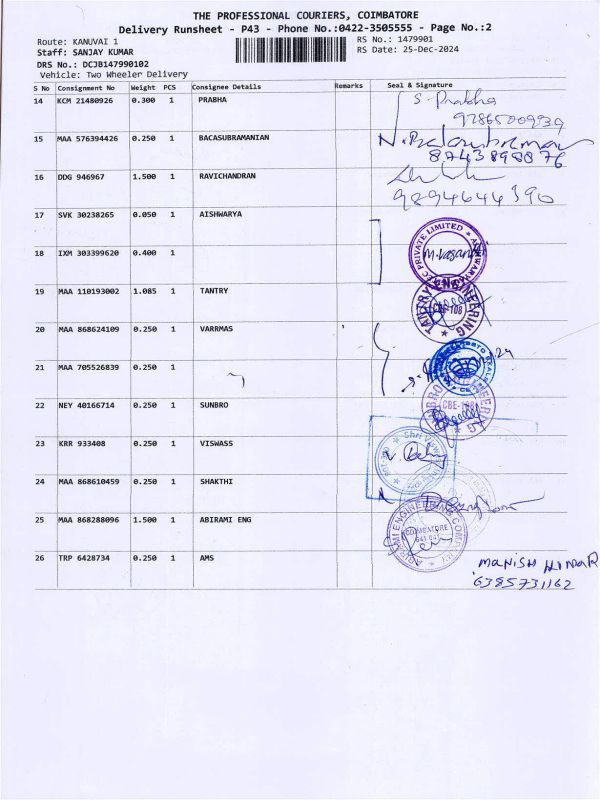 THE PROFESSIONAL COURIERS, COIMBATORE
Delivery Runsheet - P43 - Phone No.:0422-3505555 - Page No.:2
Route: KANUVAI 1 RS No.: 1479901
Staff: SANJAY KUMAR RS Date: 25-Dec-2024
DRS No.: DCJB147990102
Vehicle: Two Wheeler Delivery
S No Consignment No Weight PCS Consignee Details Remarks Seal & Signature
14 KCM 21480926 0.300 1 PRABHA S. Prabha
15 MAA 576394426 0.250 1 BACASUBRAMANIAN
16 DDG 946967 1.500 1 RAVICHANDRAN
9894644390
17 SVK 30238265 0.050 1 AISHWARYA
18 IXM 303399620 0.400 1
19 MAA 110193002 1.085 1 TANTRY TANTRY ENGINEERING CBE-108
20 MAA 868624109 0.250 1 VARRMAS
21 MAA 705526839 0.250 1
22 NEY 40166714 0.250 1 SUNBRO
23 KRR 933408 0.250 1 VISWASS
24 MAA 868610459 0.250 1 SHAKTHI
25 MAA 868288096 1.500 1 ABIRAMI ENG ABIRAMI ENGINEERING COMPANY COIMBATORE
26 TRP 6428734 0.250 1 AMS MANISH
6385731162